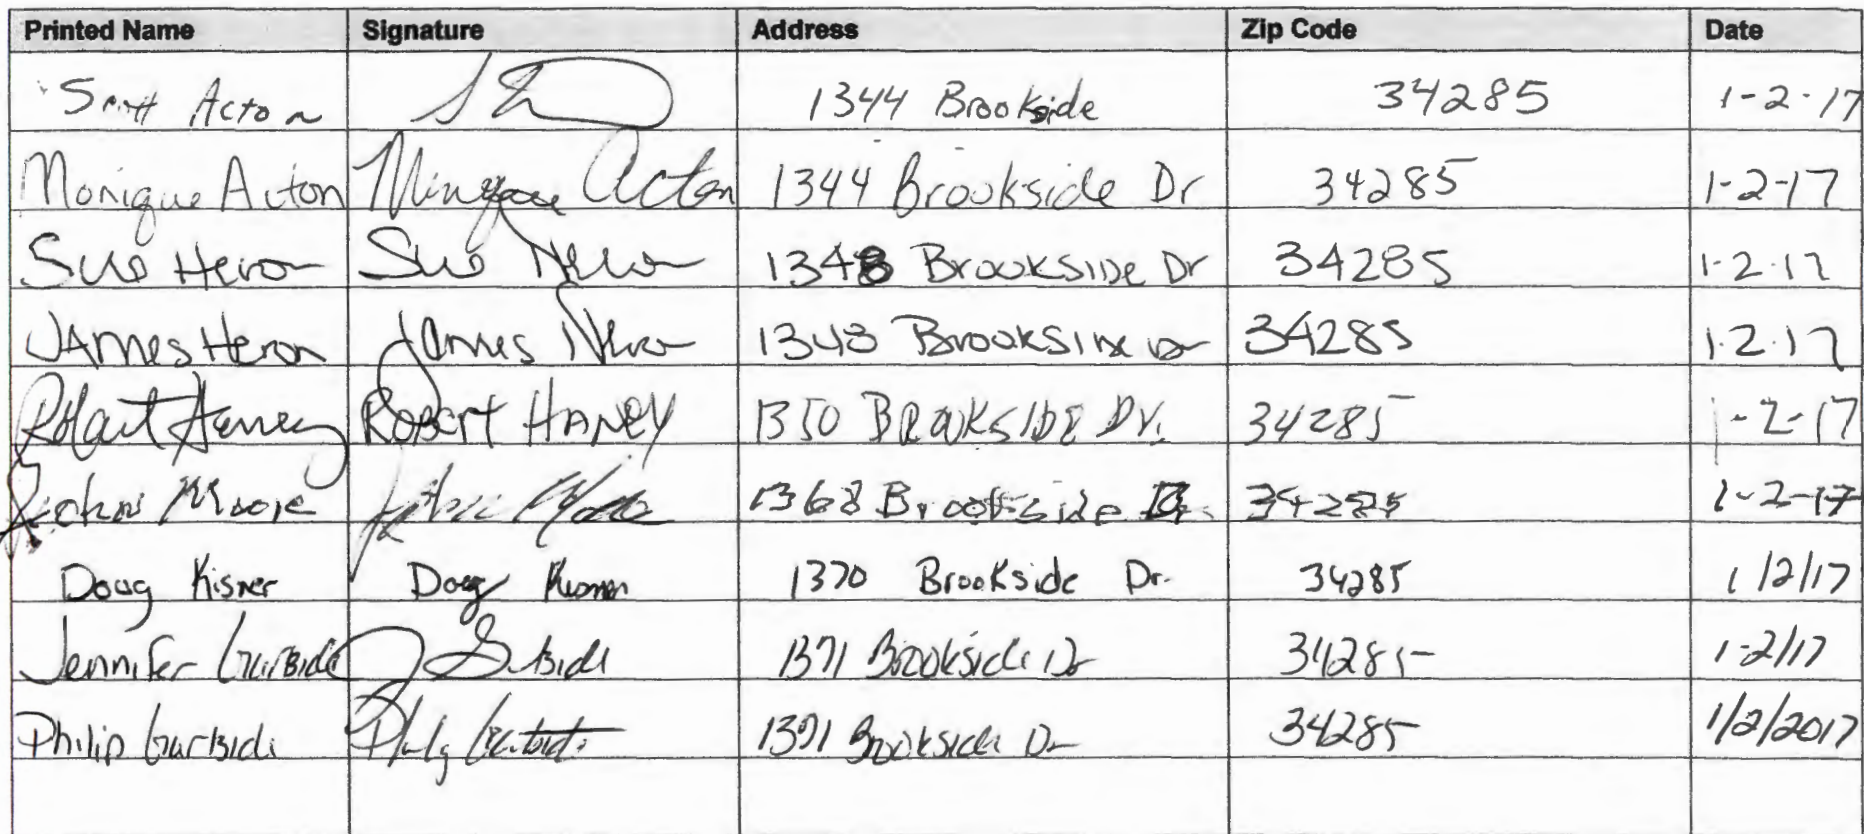 Printed Name Signature Address Zip Code Date
Scott Acton 1344 Brookside 34285 1-2-17
Monique Acton Monique Acton 1344 Brookside Dr 34285 1-2-17
Sue Heron Sue Heron 1348 Brookside Dr 34285 1-2-17
James Heron James Heron 1348 Brookside Dr 34285 1.2.17
Robert Haney Robert Haney 1350 Brookside Dr. 34285 1-2-17
Moore 1368 Brookside Dr. 34285 1-2-17
Doug Kisner Doug Kisner 1370 Brookside Dr. 34285 1/2/17
Jennifer Garside J Garside 1371 Brookside Dr 34285 1-2/17
Philip Garside Philip Garside 1371 Brookside Dr 34285 1/2/2017